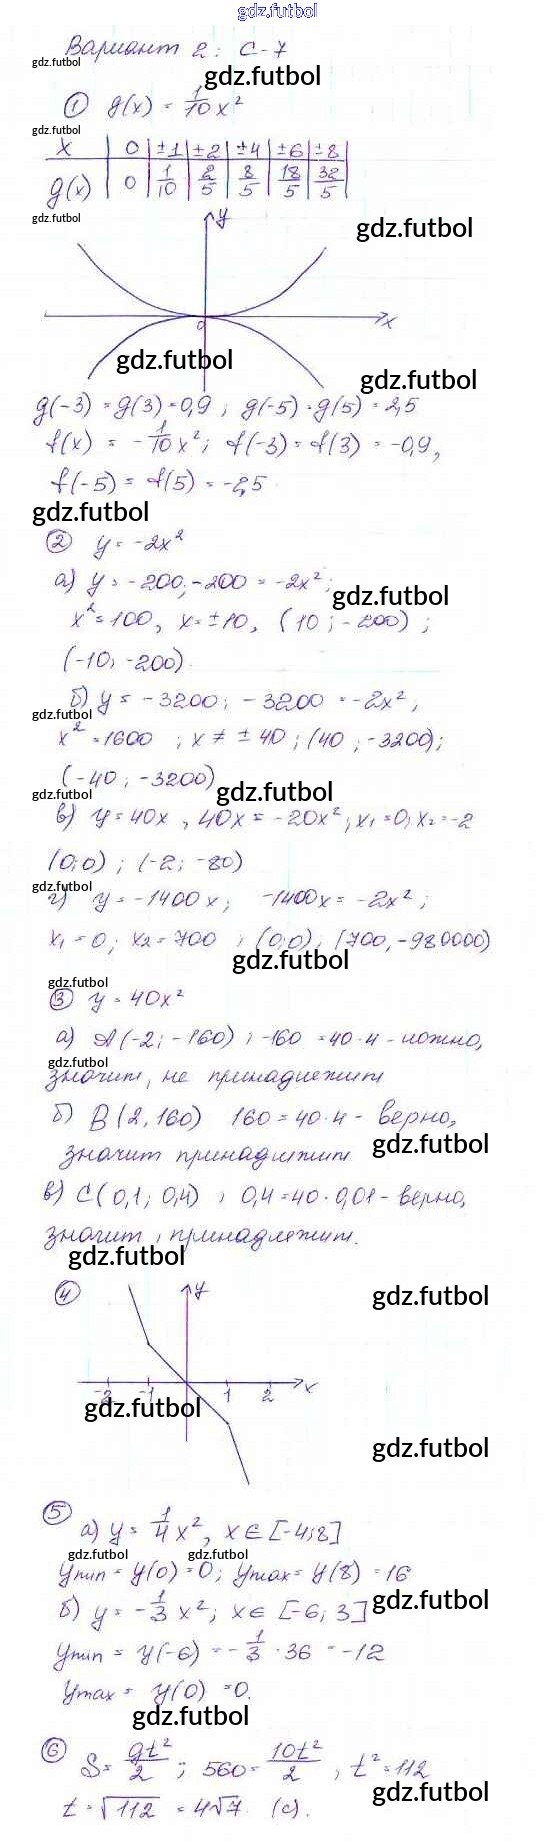 gdz.futbol
Вариант 2: С-7
gdz.futbol
gdz.futbol
① g(x) = 1/10 x²
gdz.futbol
x | 0 | ±1 | ±2 | ±4 | ±6 | ±8
g(x) | 0 | 1/10 | 2/5 | 8/5 | 18/5 | 32/5
gdz.futbol
y
gdz.futbol
0 x
gdz.futbol
gdz.futbol
g(-3) = g(3) = 0,9 ; g(-5) = g(5) = 2,5
f(x) = -1/10 x²; f(-3) = f(3) = -0,9,
f(-5) = f(5) = -2,5
gdz.futbol
② y = -2x²
а) y = -200; -200 = -2x²;
gdz.futbol
x² = 100, x = ±10, (10; -200) ;
(-10; -200)
б) y = -3200; -3200 = -2x²,
gdz.futbol
x² = 1600 ; x ≠ ±40 ; (40 ; -3200);
(-40 ; -3200)
gdz.futbol
gdz.futbol
в) y = 40x , 40x = -20x²; x₁ = 0; x₂ = -2
(0;0) ; (-2; -80)
gdz.futbol
г) y = -1400x; -1400x = -2x² ;
x₁ = 0; x₂ = 700 ; (0;0); (700, -980000)
gdz.futbol
gdz.futbol
③ y = 40x²
а) A(-2; -160) ; -160 = 40·4 - ложно,
gdz.futbol
значит, не принадлежит
б) B(2, 160) 160 = 40·4 - верно,
gdz.futbol
значит принадлежит
в) C(0,1; 0,4) ; 0,4 = 40·0,01 - верно,
значит, принадлежит.
gdz.futbol
④ y
gdz.futbol
-2 -1 1 2 x
gdz.futbol
gdz.futbol
⑤ а) y = 1/4 x², x ∈ [-4;8]
gdz.futbol
gdz.futbol
ymin = y(0) = 0; ymax = y(8) = 16
б) y = -1/3 x²; x ∈ [-6; 3]
gdz.futbol
ymin = y(-6) = -1/3 · 36 = -12
ymax = y(0) = 0.
gdz.futbol
⑥ S = gt²/2 ; 560 = 10t²/2 , t² = 112
gdz.futbol
t = √112 = 4√7 (с).